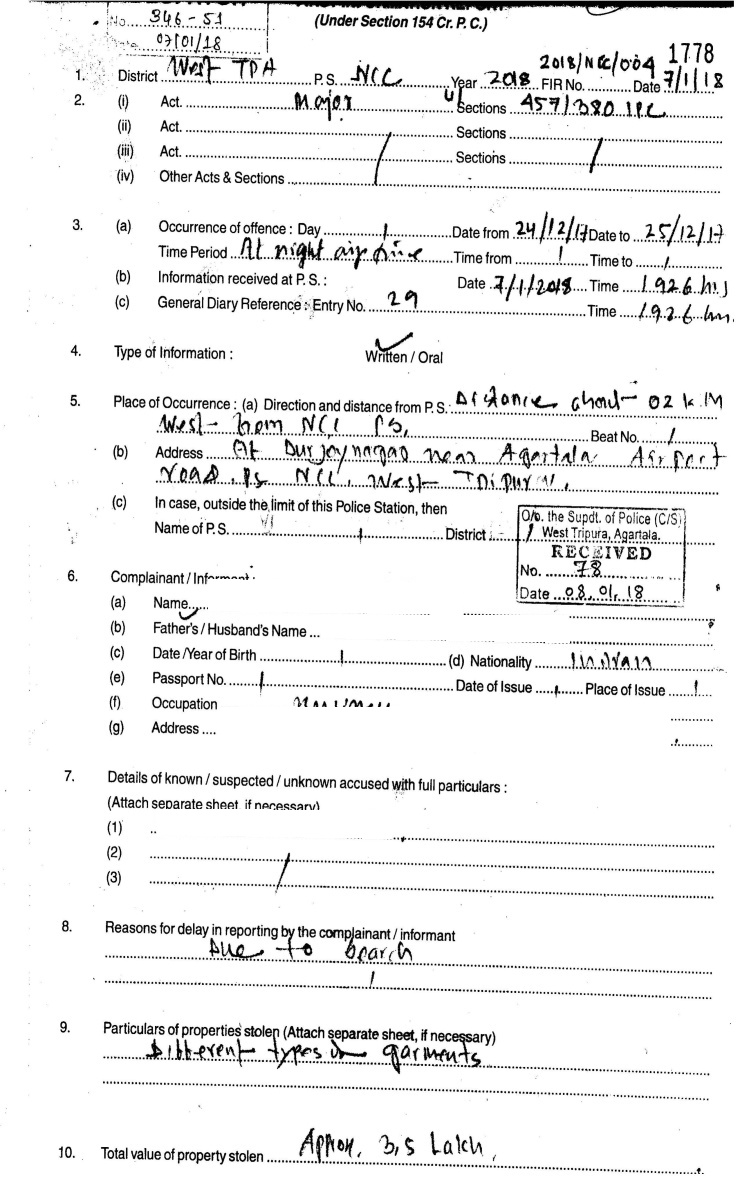 (Under Section 154 Cr. P. C.)
No. 346-51
07/01/18
1778
2018/NCC/004
1. District West TPA P.S. NCC Year 2018 FIR No. Date 7/1/18
2. (i) Act. Major u/ Sections 457/380 IPC
(ii) Act. Sections
(iii) Act. Sections
(iv) Other Acts & Sections
3. (a) Occurrence of offence : Day Date from 24/12/17 Date to 25/12/17
Time Period At night Time from Time to
(b) Information received at P. S. : Date 7/1/2018 Time 1926 hrs
(c) General Diary Reference : Entry No. 29 Time 1926 hrs.
4. Type of Information : Written / Oral
5. Place of Occurrence : (a) Direction and distance from P. S. Distance about 02 k.M
West from NCC PS, Beat No.
(b) Address At Durjoynagar near Agartala Airport
road, Ps NCC, West Tripura,
(c) In case, outside the limit of this Police Station, then
Name of P. S. District
O/o. the Supdt. of Police (C/S)
West Tripura, Agartala.
RECEIVED
No. 78
Date 08.01.18
6. Complainant / Informant
(a) Name
(b) Father's / Husband's Name
(c) Date /Year of Birth (d) Nationality Indian
(e) Passport No. Date of Issue Place of Issue
(f) Occupation
(g) Address
7. Details of known / suspected / unknown accused with full particulars :
(Attach separate sheet, if necessary)
(1)
(2)
(3)
8. Reasons for delay in reporting by the complainant / informant
Due to search
9. Particulars of properties stolen (Attach separate sheet, if necessary)
Different types garments
10. Total value of property stolen Approx. 3,5 Lakh,